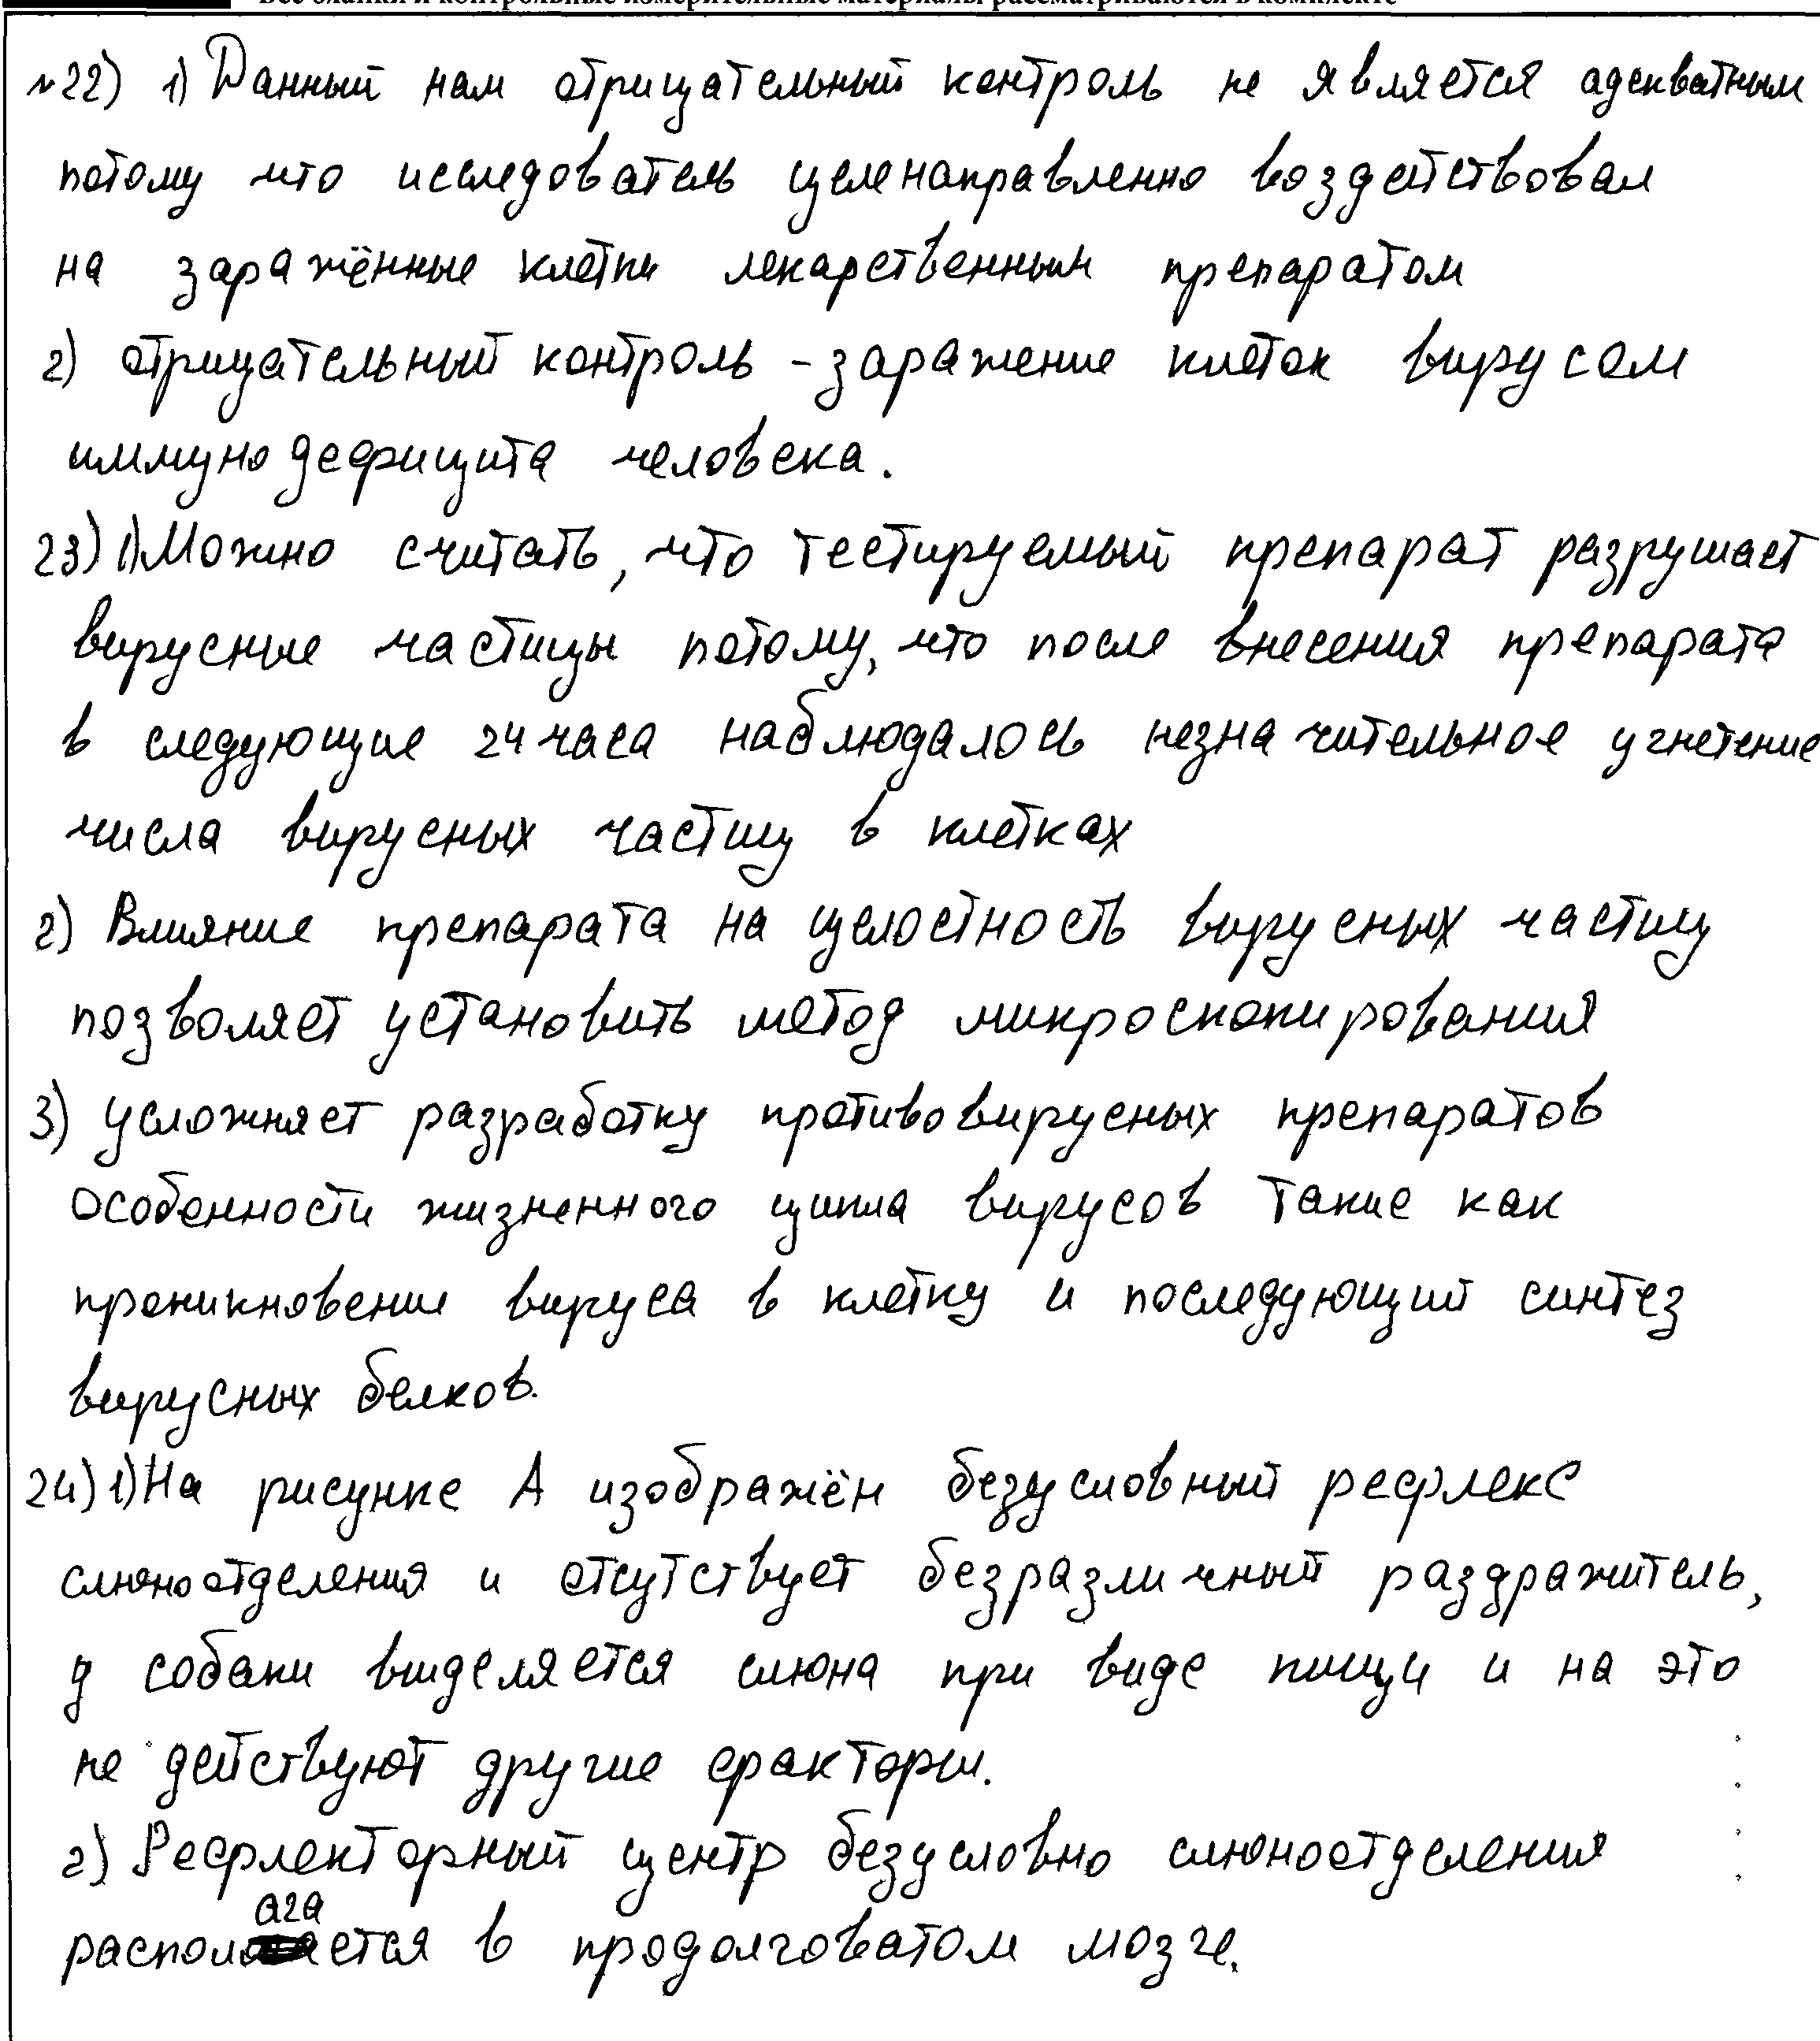 Все бланки и контрольные измерительные материалы рассматриваются в комплекте
№22) 1) Данный нам отрицательный контроль не является адекватным
потому что исследователь целенаправленно воздействовал
на заражённые клетки лекарственным препаратом
2) отрицательный контроль - заражение клеток вирусом
иммунодефицита человека.
23) 1) Можно считать, что тестируемый препарат разрушает
вирусные частицы потому, что после внесения препарата
в следующие 24 часа наблюдалось незначительное угнетение
числа вирусных частиц в клетках
2) Влияние препарата на целостность вирусных частиц
позволяет установить метод микроскопирования
3) усложняет разработку противовирусных препаратов
особенности жизненного цикла вирусов такие как
проникновение вируса в клетку и последующий синтез
вирусных белков.
24) 1) На рисунке А изображён безусловный рефлекс
слюноотделения и отсутствует безразличный раздражитель,
у собаки выделяется слюна при виде пищи и на это
не действуют другие факторы.
2) Рефлекторный центр безусловно слюноотделения
располагается в продолговатом мозге.